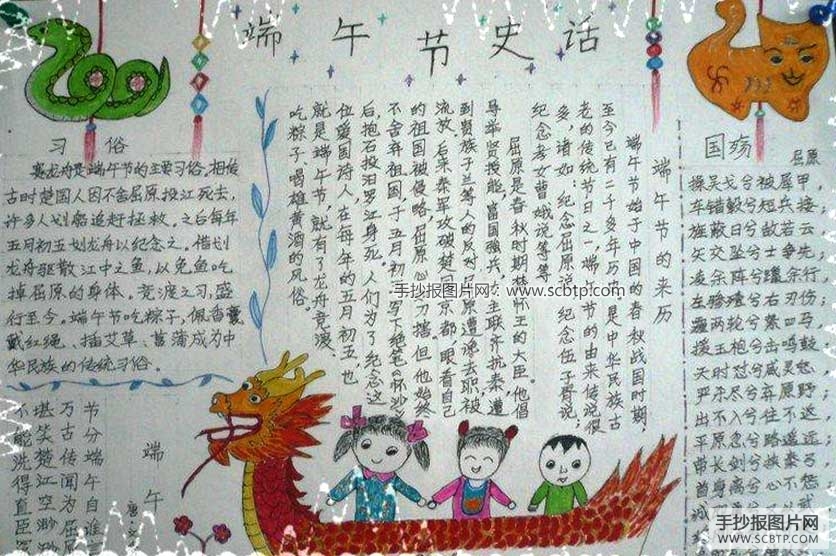 端午节史话
习俗
赛龙舟是端午节的主要习俗。相传
古时楚国人因不舍屈原投江死去，
许多人划船追赶拯救。之后每年
五月初五划龙舟以纪念之。借划
龙舟驱散江中之鱼，以免鱼吃
掉屈原的身体。竞渡之习，盛
行至今。端午节吃粽子，佩香囊
戴红绳、插艾草、菖蒲成为中
华民族的传统习俗。
端午节的来历
端午节始于中国的春秋战国时期，
至今已有二千多年历
是中华民族古
老的传统节日之一，端
节的由来传说很
多，诸如：纪念屈原说
纪念伍子胥说；
纪念孝女曹娥说等等
屈原是春秋时期楚怀王的大臣。他倡
导举贤授能，富国强兵，
主联齐抗秦，遭
到贵族子兰等人的反对
原遭谗去职，被
流放。后来秦军攻破楚国
京都，眼看自己
的祖国被侵略，屈原心
刀割，但他始终
不舍弃祖国，于五月初
写下绝笔《怀沙》
后，抱石投汨罗江身死。人们为了纪念这
位爱国诗人，在每年的五月初五，也
就是端午节，就有了龙舟竞渡、
吃粽子、喝雄黄酒的风俗。
国殇
屈原
操吴戈兮被犀甲，
车错毂兮短兵接，
旌蔽日兮敌若云，
矢交坠兮士争先，
凌余阵兮躐余行，
左骖殪兮右刃伤；
霾两轮兮絷四马，
援玉枹兮击鸣鼓，
天时怼兮威灵怒，
严杀尽兮弃原野；
出不入兮往不返，
平原忽兮路遥远，
带长剑兮挟秦弓，
首身离兮心不惩，
端午
节分端午自谁
万古传闻为屈
堪笑楚江空渺
不能洗得直臣
手抄报图片网：www.scbtp.com
手抄报图片网
WWW.SCBTP.COM